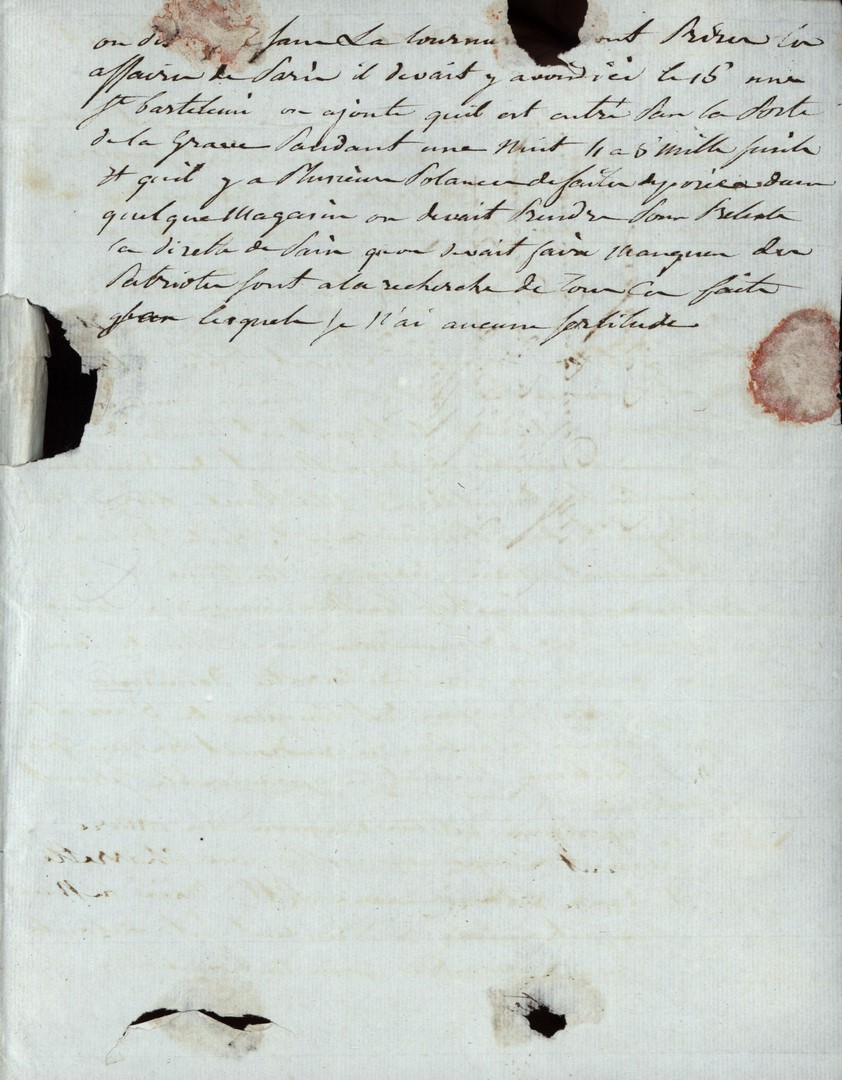 on dis sans La tournure ont Prises les
affaires de Paris il devait y avoir d'ici le 15 une
St bartelemi on ajoute quil est entré Par la Porte
de la Grave Pandant une Nuit 4 a 5 Mille fusils
et quil y a Plusieurs de deposées dans
quelque Magasin on devait Prendre Pour Pretexte
la disette de Pain quon devait faire Manquer des
Patriotes sont a la recherche de Tous Ces faits
des lesquels je n'ai aucune sertitude